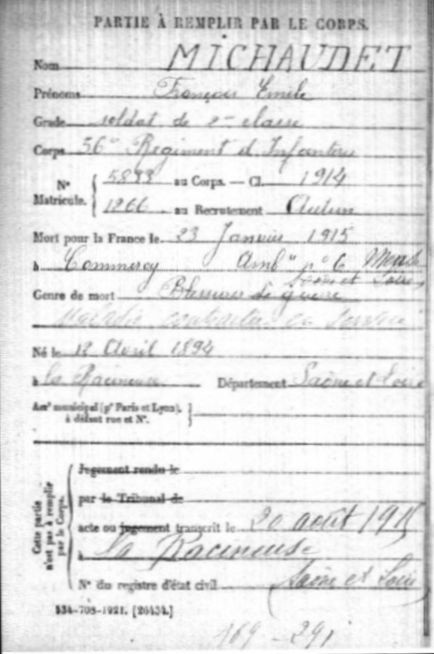 PARTIE À REMPLIR PAR LE CORPS.
Nom MICHAUDET
Prénoms François Emile
Grade soldat de 2me classe
Corps 56e Régiment d'Infanterie
N° Matricule. 5893 au Corps. — Cl. 1914
1266 au Recrutement Autun
Mort pour la France le 23 Janvier 1915
à Commercy Amb n° 6 Meuse
Genre de mort Blessures de guerre
Maladie contractée en service
Né le 12 Avril 1894
à La Racineuse Département Saône et Loire
Arrt municipal (pr Paris et Lyon), à défaut rue et N°.
Cette partie n'est pas à remplir par le Corps.
Jugement rendu le
par le Tribunal de
acte ou jugement transcrit le 20 août 1915
à La Racineuse
N° du registre d'état civil Saône et Loire
534-708-1921. [26434.]
169 - 291